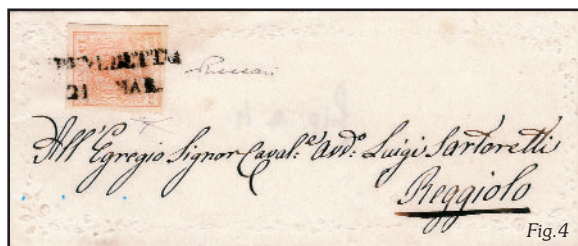 BENEDETTO
21 MAR.
All' Egregio Signor Caval:e Avv:o Luigi Sartoretti
Reggiolo
Fig.4